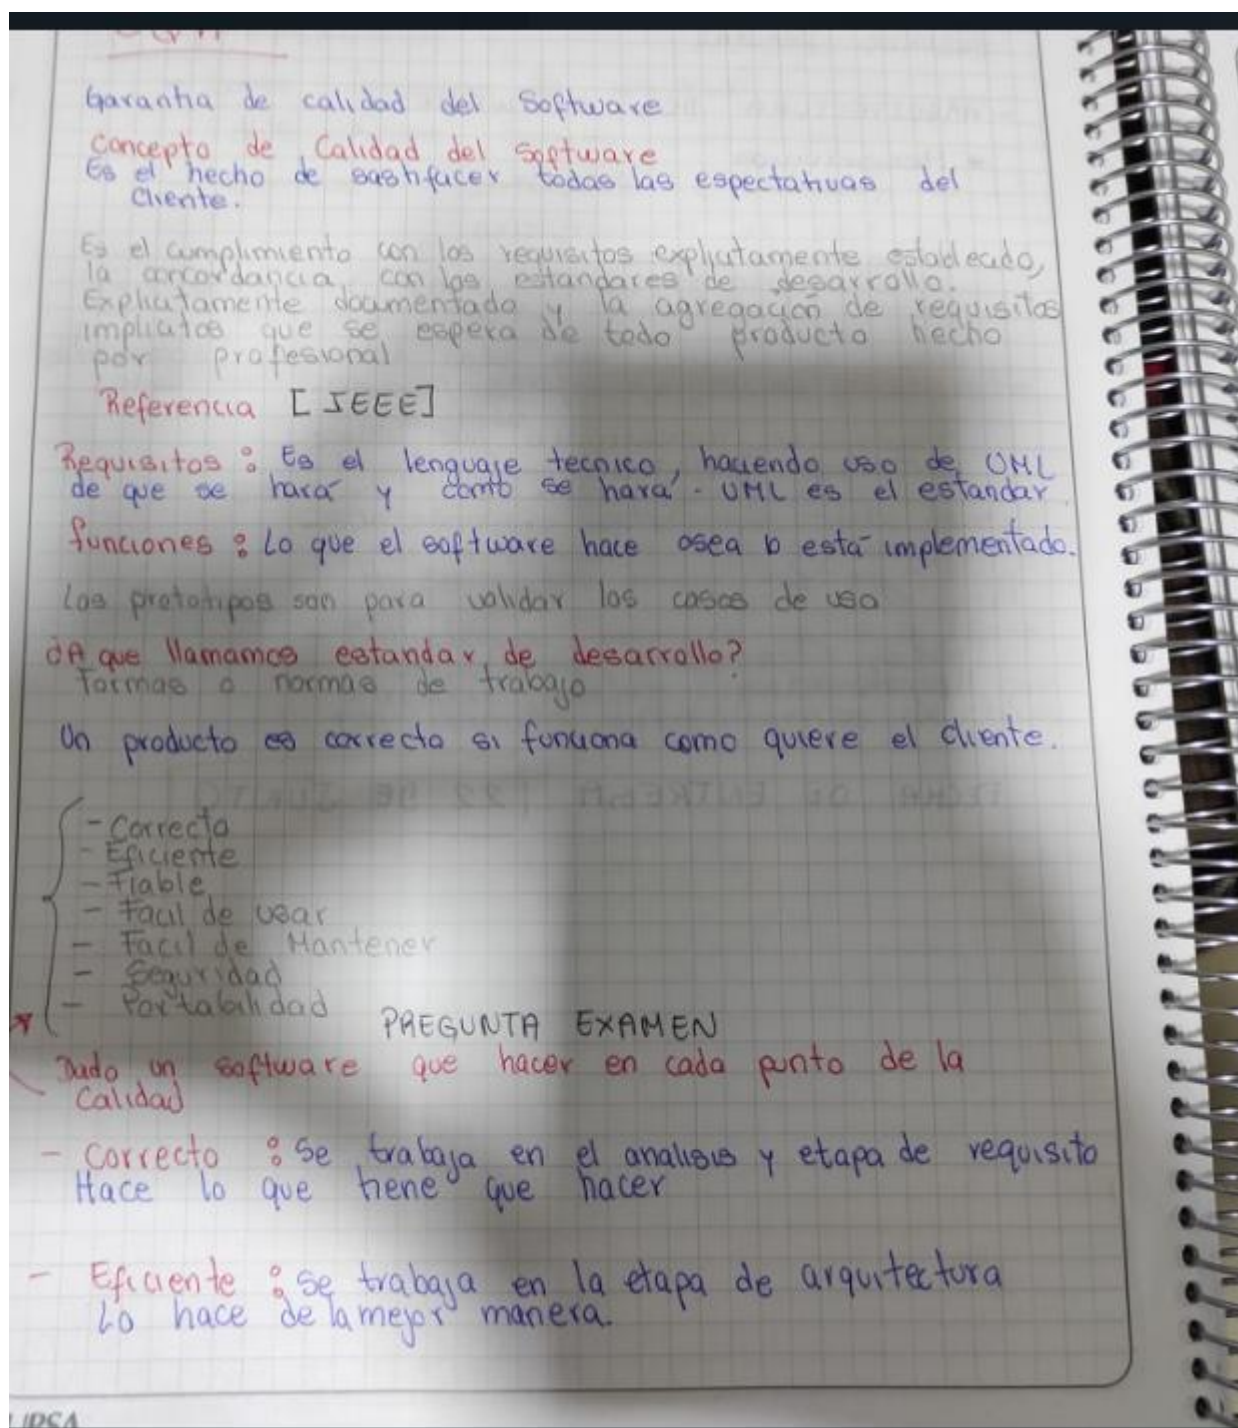 SQA
Garantia de calidad del Software
Concepto de Calidad del Software
Es el hecho de sastifacer todas las espectativas del
Cliente.
Es el cumplimiento con los requisitos explicitamente establecido,
la concordancia con los estandares de desarrollo.
Explicitamente documentado y la agregación de requisitos
implicitos que se espera de todo producto hecho
por profesional
Referencia [IEEE]
Requisitos : Es el lenguaje tecnico, haciendo uso de UML
de que se hará y como se hará - UML es el estandar
funciones : Lo que el software hace osea lo está implementado.
Los prototipos son para validar los casos de uso
¿A que llamamos estandar de desarrollo?
Formas o normas de trabajo
Un producto es correcto si funciona como quiere el cliente.
FECHA DE ENTREGA 22 DE JUNIO
- Correcto
- Eficiente
- Fiable
- Facil de usar
- Facil de Mantener
- Seguridad
- Portabilidad
PREGUNTA EXAMEN
Dado un software que hacer en cada punto de la
Calidad
- Correcto : Se trabaja en el analisis y etapa de requisito
Hace lo que tiene que hacer
- Eficiente : Se trabaja en la etapa de arquitectura
Lo hace de la mejor manera.
UPSA